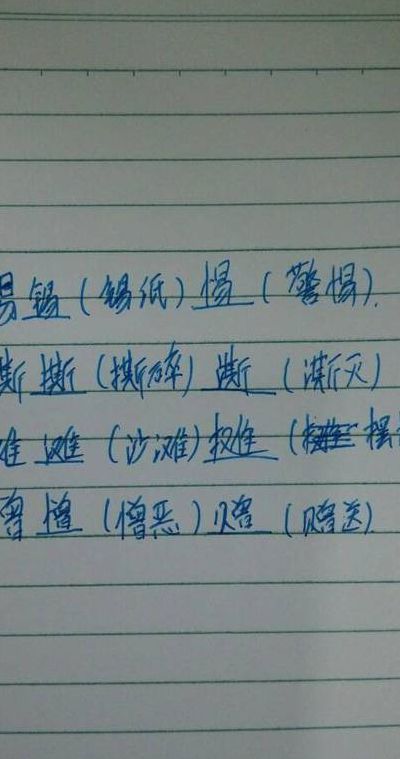 易 锡（锡纸）惕（警惕）.
斯 撕（撕碎）澌（澌灭）
难 滩（沙滩）摊（摆
曾 憎（憎恶）赠（赠送）